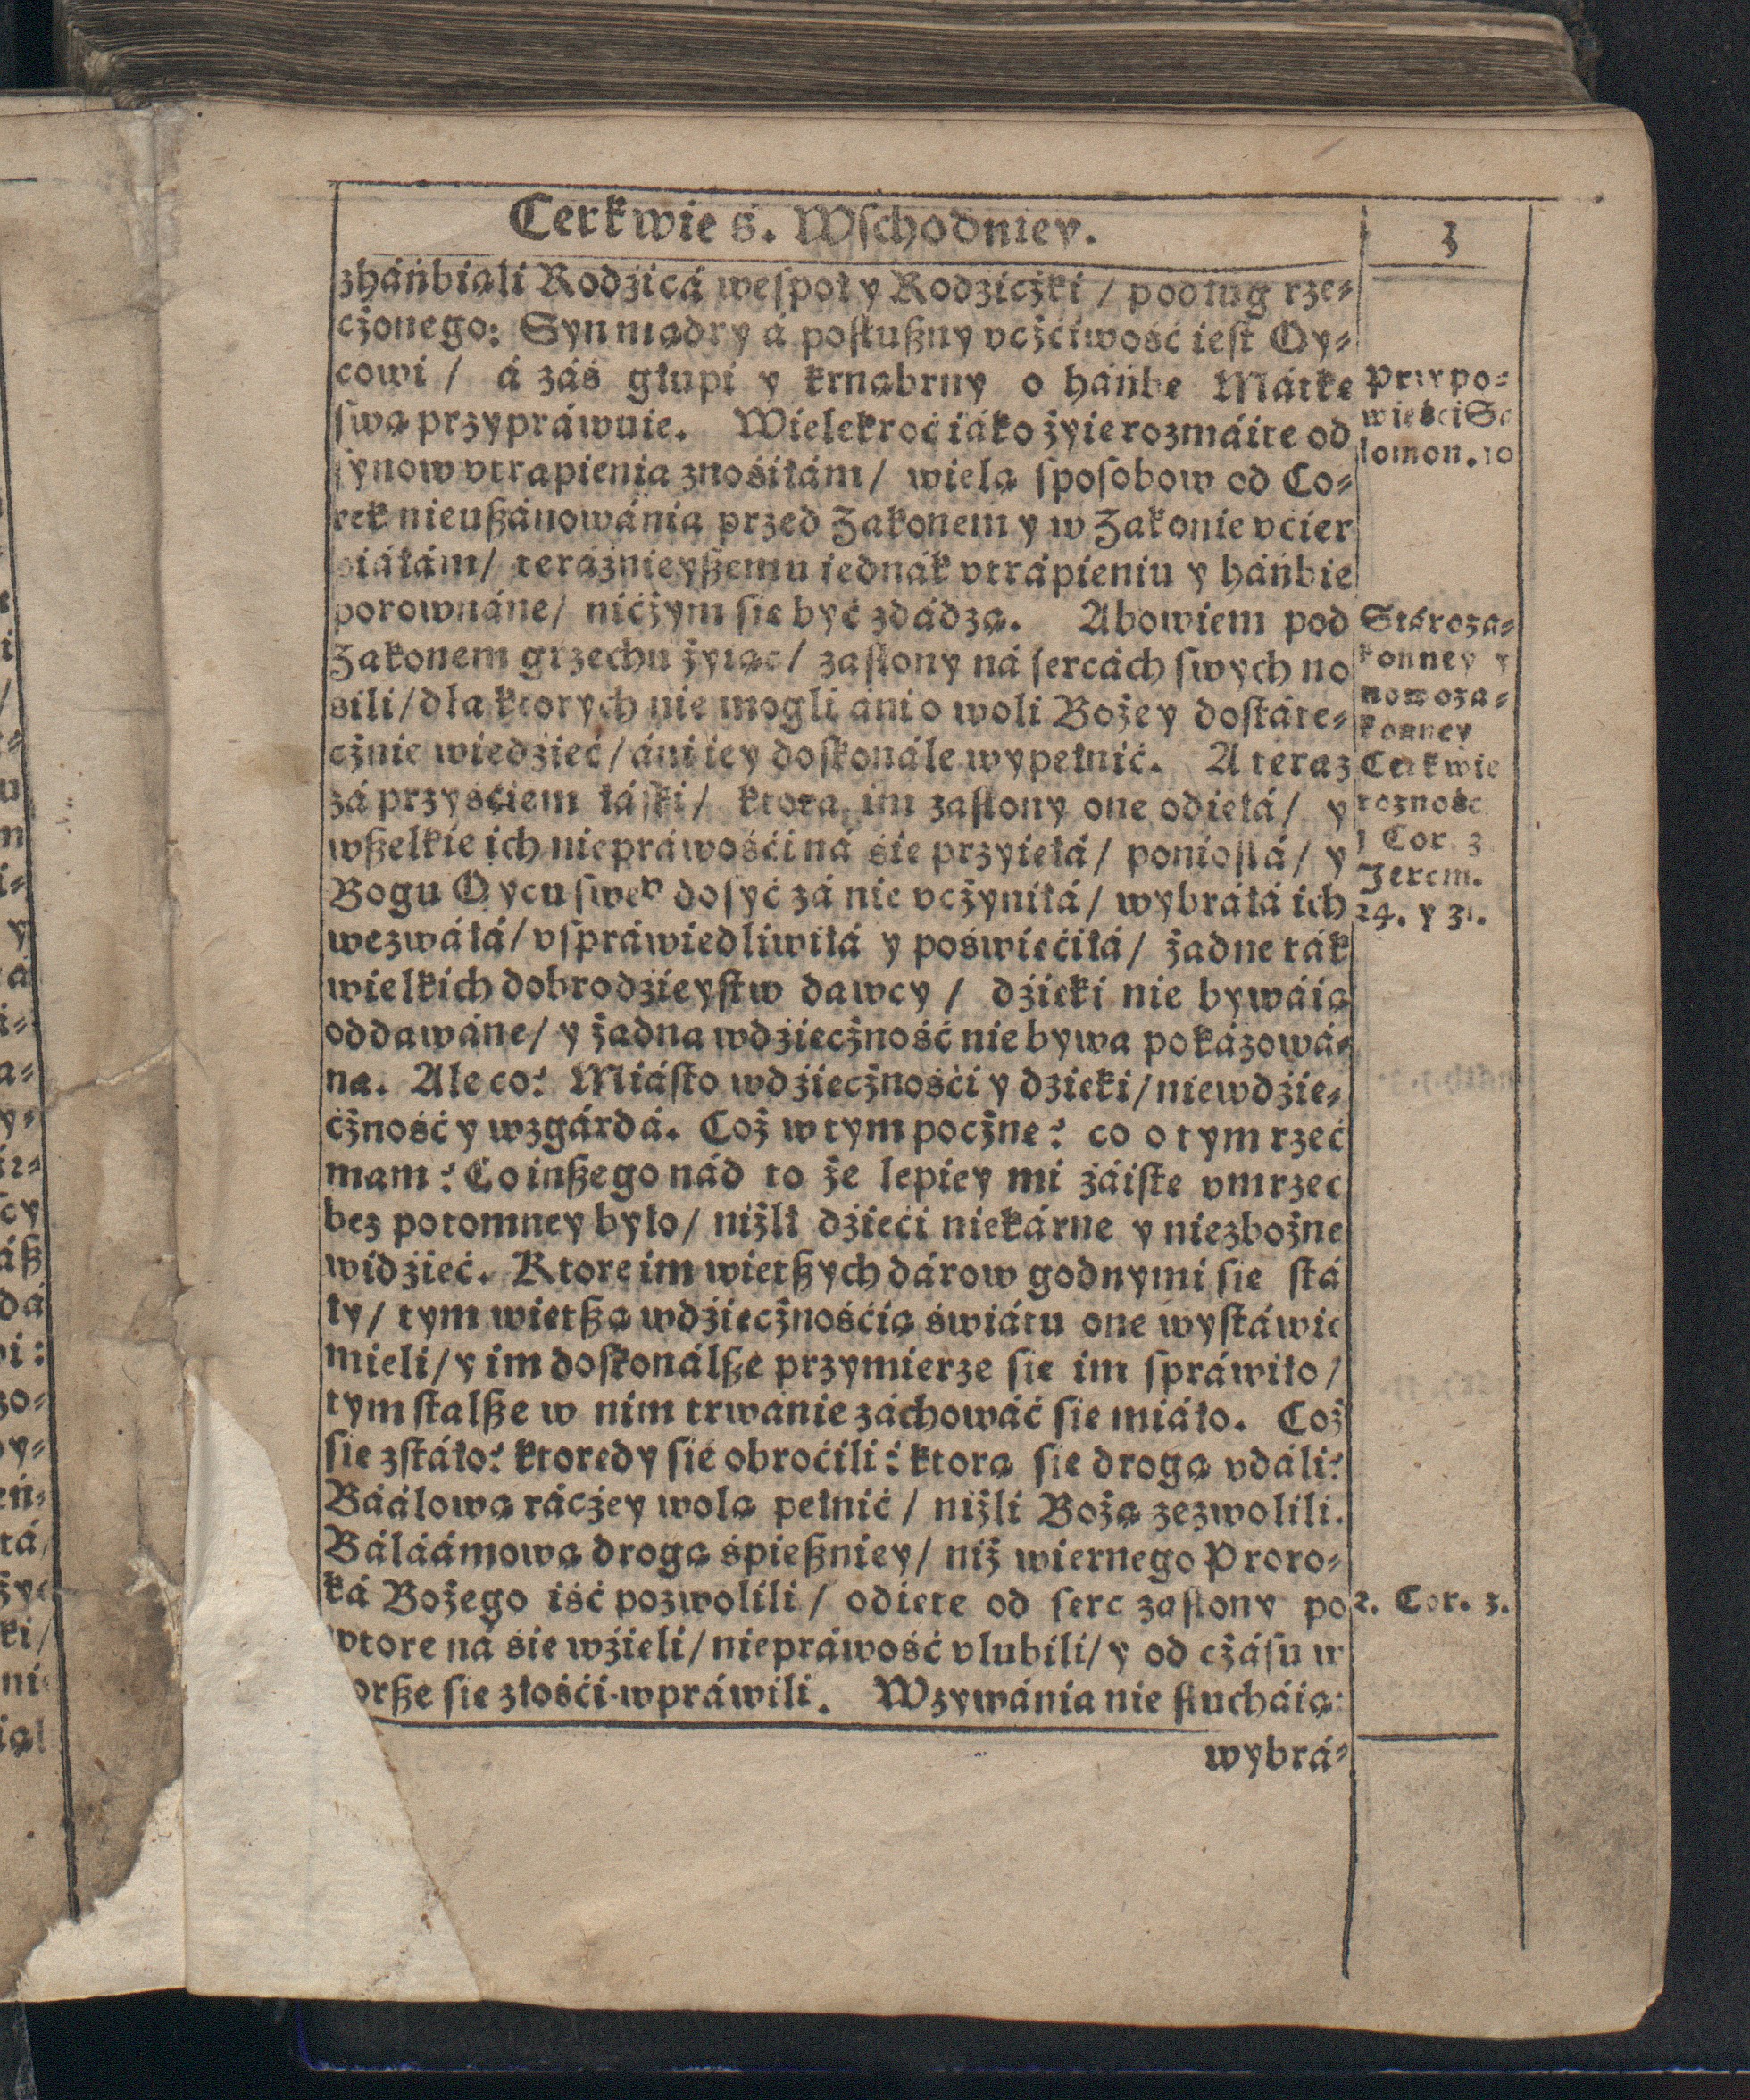 Cerkwie s. Wſchodniey.
3
zháńbiąli Rodźicá weſpoł y Rodzicżki / podług rze⸗
cżonego: Syn mądry á poſłußny vcżćiwość ieſt Oy⸗
cowi / á záś głupi y krnąbrny o háńbe Mátke
ſwą przypráwuie. Wielekroć iáko żyie rozmáite od
ſynow vtrapienia znośiłám / wielą ſpoſobow od Co⸗
rek nieußánowánia przed Zakonem y w Zakonie vcier
piáłám / teráźnieyßemu iednák vtrápieniu y háńbie
porownáne / nicżym ſie być zdádzą. Abowiem pod
Zakonem grzechu żyiąc / zaſłony ná ſercách ſwych no
śili / dla ktorych nie mogli áni o woli Bożey doſtáte⸗
cżnie wiedźieć / áni iey doſkonále wypełnić. A teraz
zá przyśćiem łáſki / ktora im zaſłony one odięłá / y
wßelkie ich niepráwośći ná śie przyięłá / ponioſłá / y
Bogu Oycu ſweᵛ doſyć zá nie vcżyniłá / wybráłá ich
wezwáłá / vſpráwiedliwiłá y poświećiłá / żadne ták
wielkich dobrodźieyſtw dawcy / dźięki nie bywáią
oddawáne / y żadna wdźięcżność nie bywa pokázowá⸗
na. Ale co? Miáſto wdźięcżnośći y dzięki / niewdźię⸗
cżność y wzgárdá. Coż w tym pocżnę? co o tym rzec
mam? Co inßego nád to że lepiey mi záiſte vmrzeć
bez potomney było / niżli dźieći niekárne y niezbożne
widźieć. Ktore im więtßych dárow godnymi ſie ſtá
ły / tym więtßą wdźięcżnośćią świátu one wyſtáwic
mieli / y im doſkonálße przymierze ſie im ſpráwiło /
tym ſtalße w nim trwánie záchowáć ſie miáło. Coż
ſie zſtáło? ktorędy ſie obroćili? ktorą ſie drogą vdáli?
Báálową ráczey wolą pełnić / niżli Bożą zezwolili.
Báláámową drogą śpießniey / niż wiernego Proro⸗
ká Bożego iść pozwolili / odięte od ſerc zaſłony po
wtore ná śie wźięli / niepráwość vlubili / y od cżáſu w
orße ſie złośći wpráwili. Wzywánia nie ſłucháią:
wybrá⸗
Przypo⸗
wieści Sa
lomon. 10
Stároza⸗
konney y
nowoza⸗
konney
Cerkwie
rożność
1 Cor. 3
Jerem.
24. y 31.
2. Cor. 3.